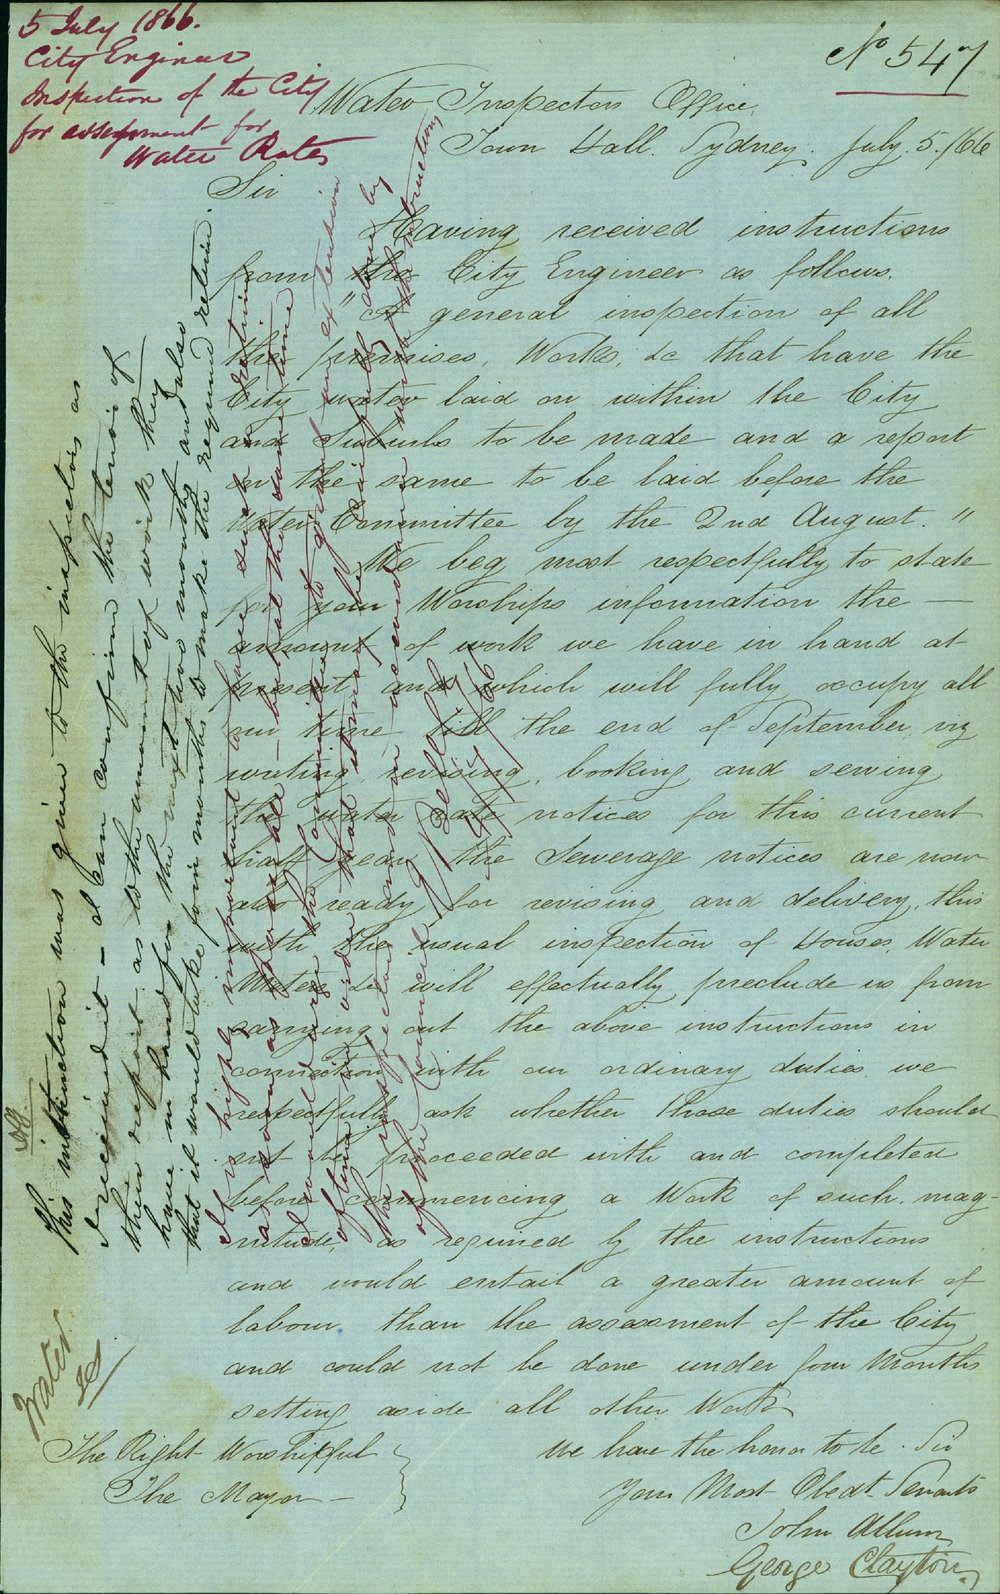 5 July 1866.
City Engineer
Inspection of the City
for assessment for
Water Rates
No 547
Water Inspectors Office,
Town Hall. Sydney. July. 5. /66
Sir
Having received instructions
from the City Engineer as follows.
"A general inspection of all
the premises, Works, &c that have the
City water laid on within the City
and Suburbs to be made and a report
on the same to be laid before the
Water Committee by the 2nd August."
We beg most respectfully to state
for your Worships information the —
amount of work we have in hand at
present, and which will fully occupy all
our time till the end of September, viz
writing, revising, booking and serving
the water rate notices for this current
half year, the Sewerage notices are now
also ready for revising and delivery, this
with the usual inspection of Houses, Water
Meters &c will effectually preclude us from
carrying out the above instructions in
connection with our ordinary duties, we
respectfully ask whether those duties should
not be proceeded with and completed
before commencing a Work of such mag-
nitude, as required by the instructions
and would entail a greater amount of
labour than the assessment of the City
and could not be done under four Months
setting aside all other Work
We have the honor to be. Sir
Your Most Obedt. Servants
John Allum
George Clayton.
The Right Worshipful
The Mayor —
This instruction was given to the inspectors as
I received it — I can confirm the tenor of
their report as to the amount of work they
have in hand for the next two months and also
that it would take four months to make the required return.
It is highly important to have such return
as soon as possible — but at the same time
I would urge the Committee to grant an extension
of time in order that it may be carefully done by
the inspectors and in accordance with the instructions
of the Council
E Bell
9/7/66
Water